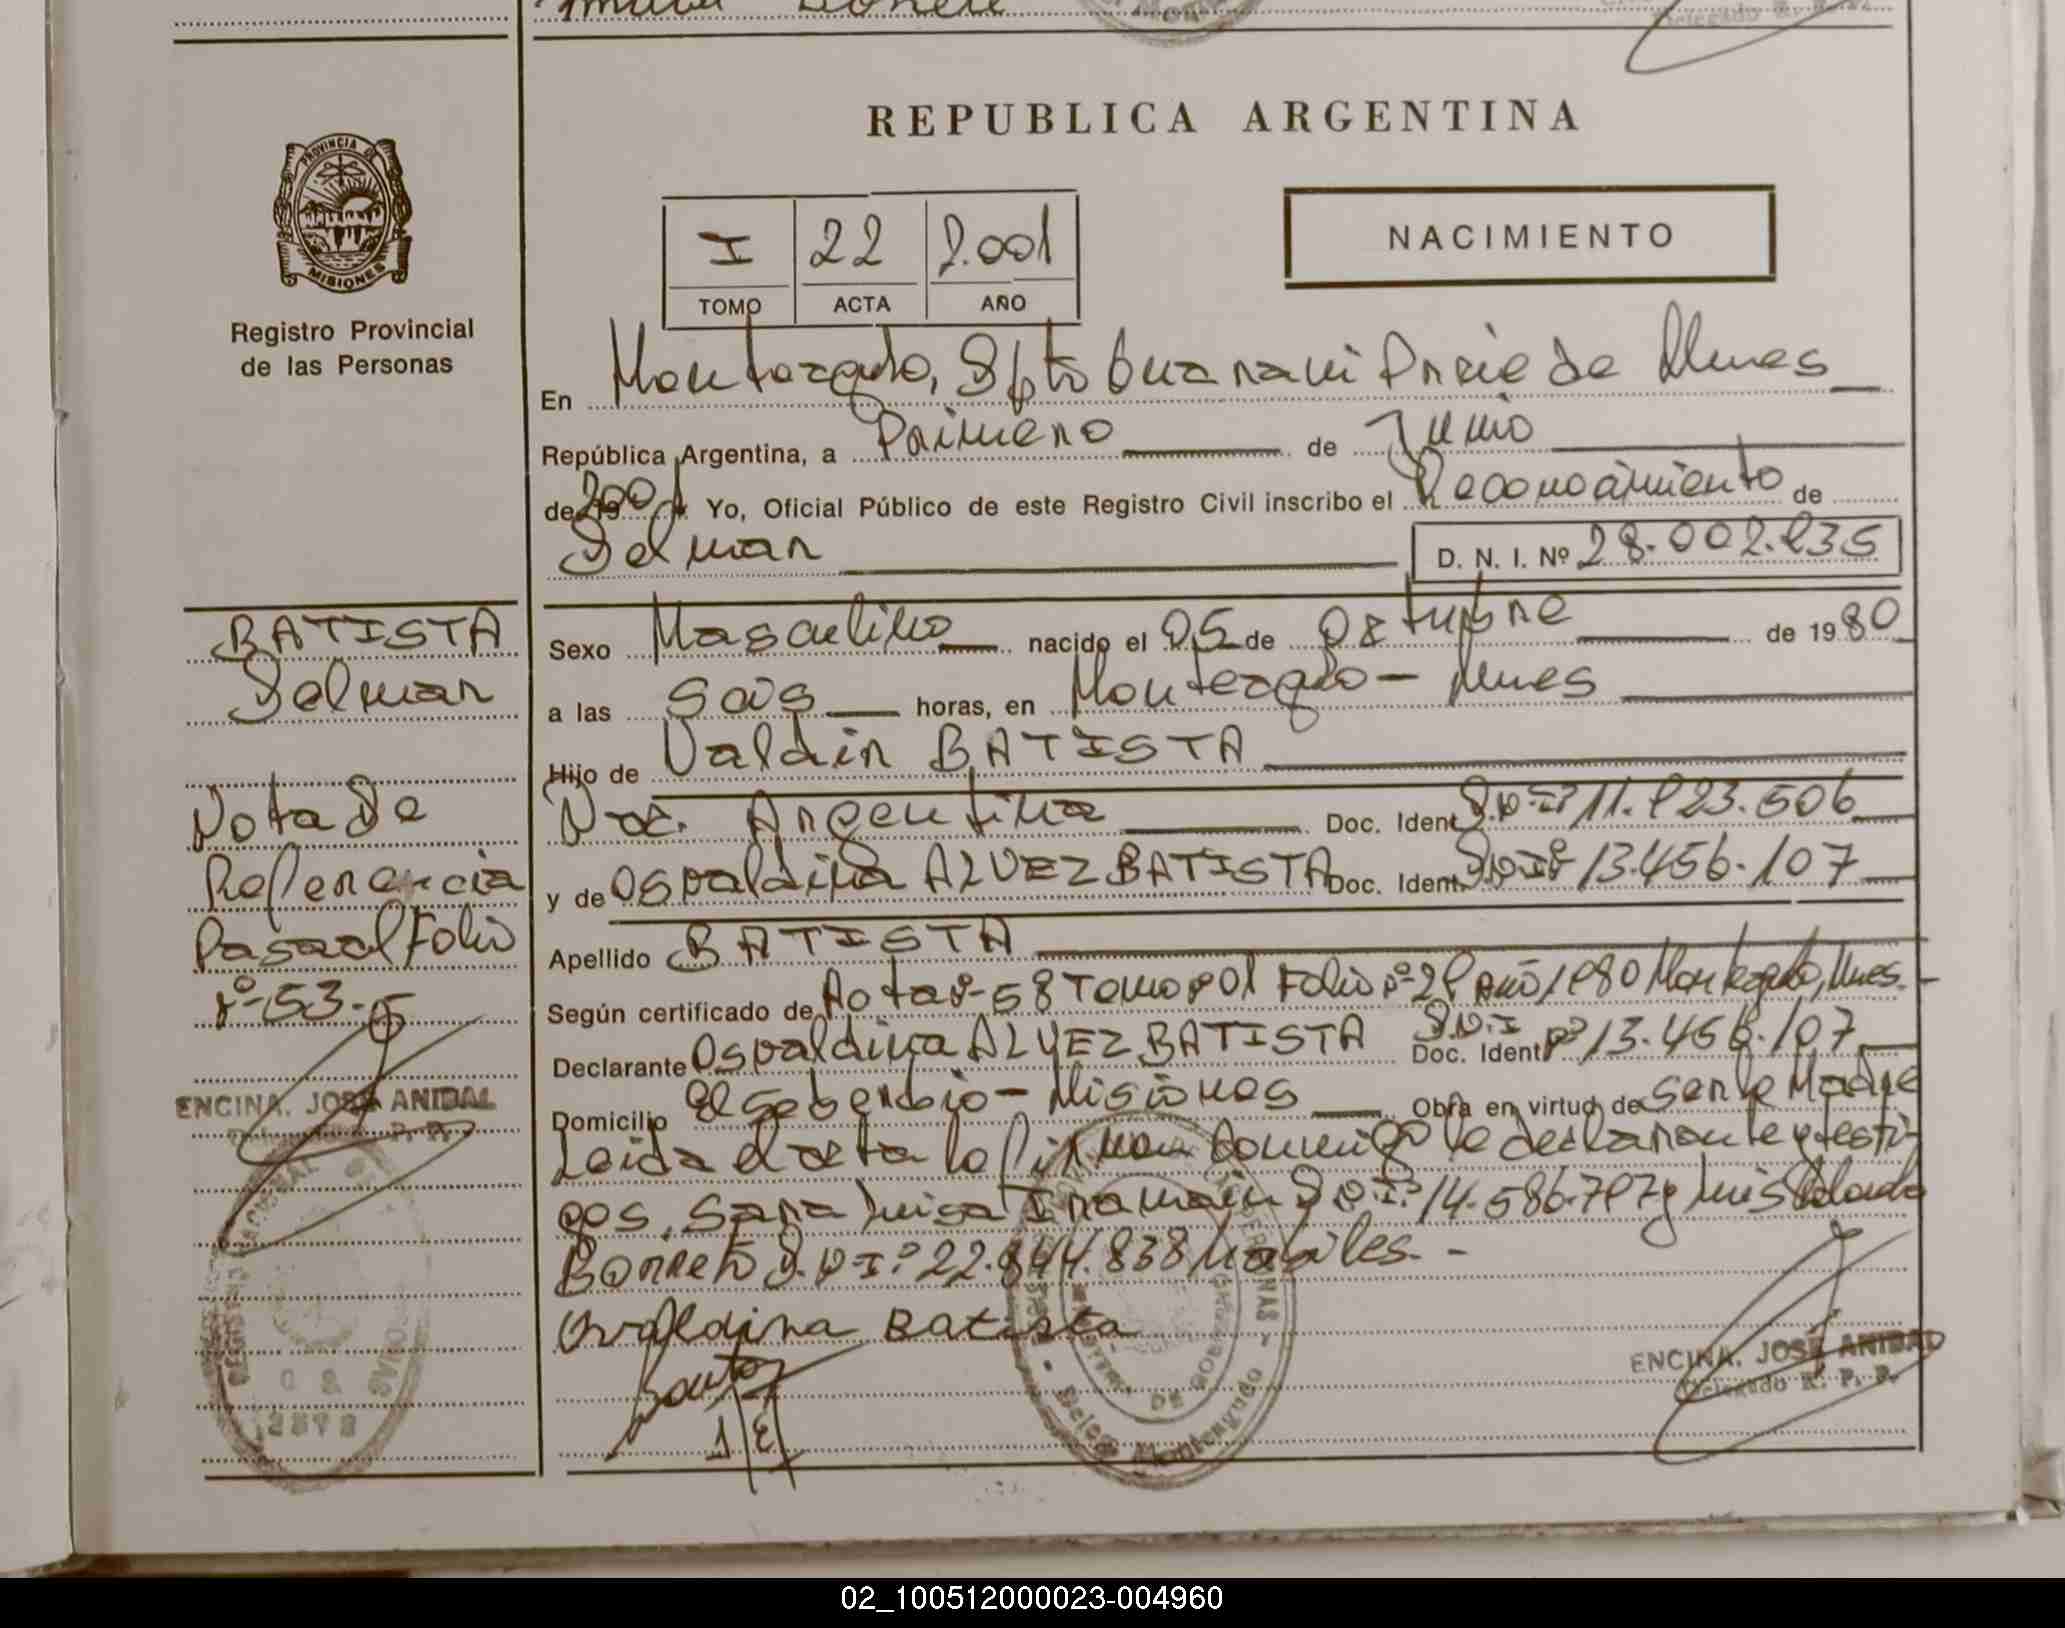 REPUBLICA ARGENTINA
PROVINCIA DE
MISIONES
Registro Provincial
de las Personas
I 22 2.001
TOMO ACTA AÑO
NACIMIENTO
En Monteagudo, Dpto Guarani Prcie de Mnes
República Argentina, a Primero de Junio
de 2001 Yo, Oficial Público de este Registro Civil inscribo el Reconocimiento de
Delmar D. N. I. Nº 28.002.835
BATISTA
Delmar
Nota De
Referencia
Pasa al Folio
Nº-53.-
ENCINA, JOSÉ ANIBAL
Sexo Masculino nacido el 05 de Octubre de 1980
a las Seis horas, en Monteagudo - Mnes
Hijo de Valdir BATISTA
Nac. Argentina Doc. Ident D.N.I Nº 11.923.506
y de Osvaldina ALVEZ BATISTA Doc. Ident D.N.I Nº 13.456.107
Apellido BATISTA
Según certificado de Acta Nº-58 Tomo Nº 01 Folio Nº-29 Año 1980 Monteagudo, Mnes.-
Declarante Osvaldina ALVEZ BATISTA Doc. Ident D.N.I Nº 13.456.107
Domicilio El Soberbio - Misiones Obra en virtud de Ser la Madre
Leida el acta la firman conmigo la declarante y testi-
gos, Sara Luisa D.N.I. 14.586.797 y Luis
Borreto D.N.I.º 22.844.838 habiles.-
Osvaldina Batista
ENCINA, JOSÉ ANIBAL
Delegado R. P. P.
02_100512000023-004960